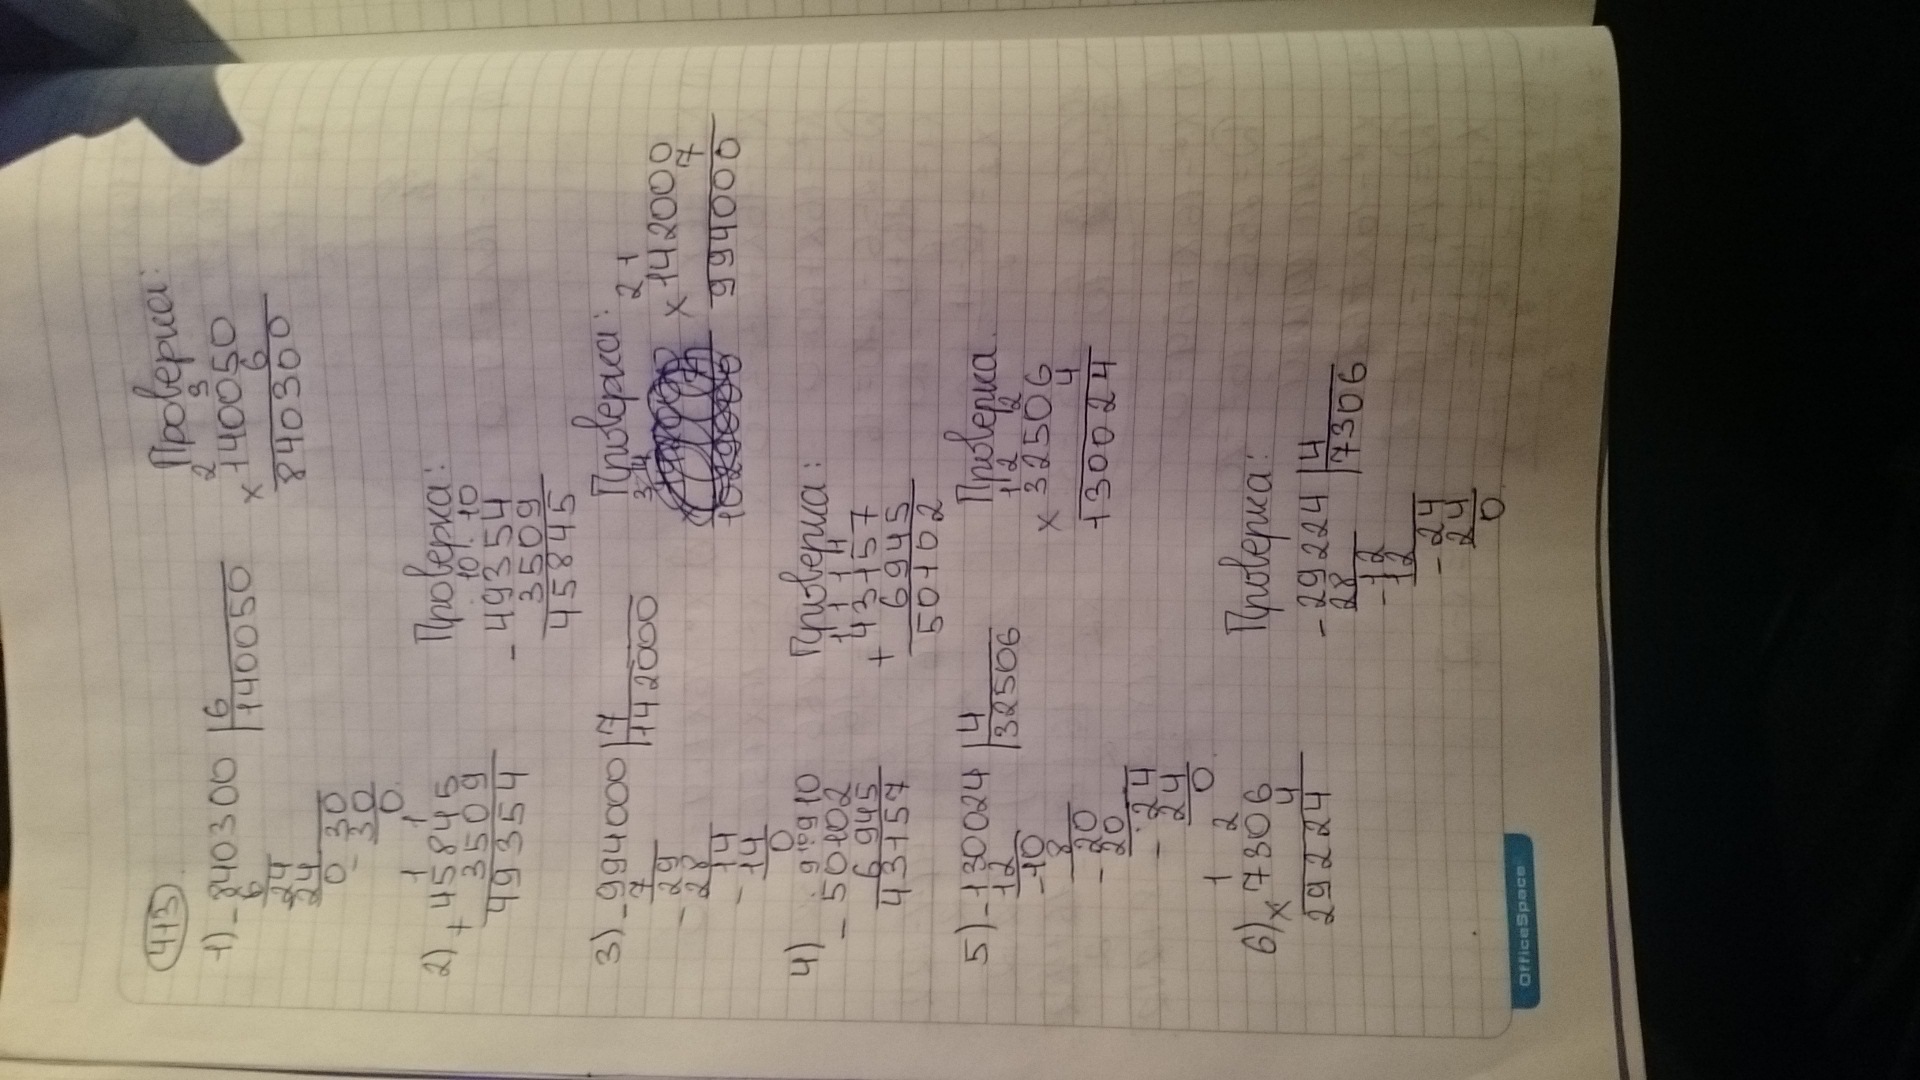 413
1) - 840300 | 6
6 | 140050
24
24
0 30
- 30
0
Проверка:
2 3
× 140050
6
840300
2) 1 1
+ 45845
3509
49354
Проверка:
10 10
- 49354
3509
45845
3) - 994000 | 7
7 | 142000
- 29
28
- 14
14
0
Проверка:
2 1
× 142000
7
994000
4) 9 10 9 10
- 50102
6945
43157
Проверка:
1 1 1 1
+ 43157
6945
50102
5) - 130024 | 4
12 | 32506
- 10
8
- 20
20
- 24
24
0
Проверка
1 2 2
× 32506
4
130024
6) 1 2
× 7306
4
29224
Проверка:
- 29224 | 4
28 | 7306
- 12
12
- 24
24
0
OfficeSpace